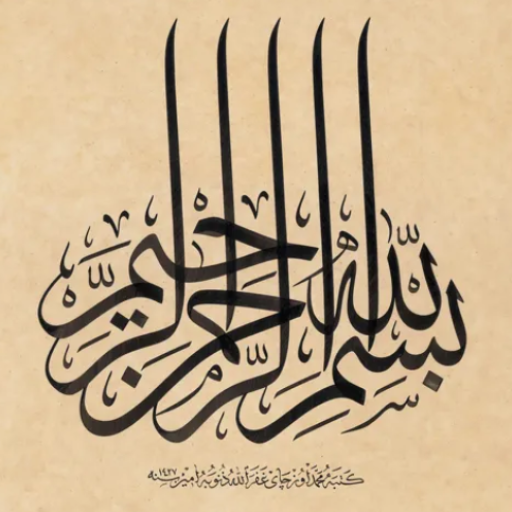 بسم الله الرحمن الرحيم
كتبه محمد اوزچاي غفر الله ذنوبه امين سنه ١٤٢٧